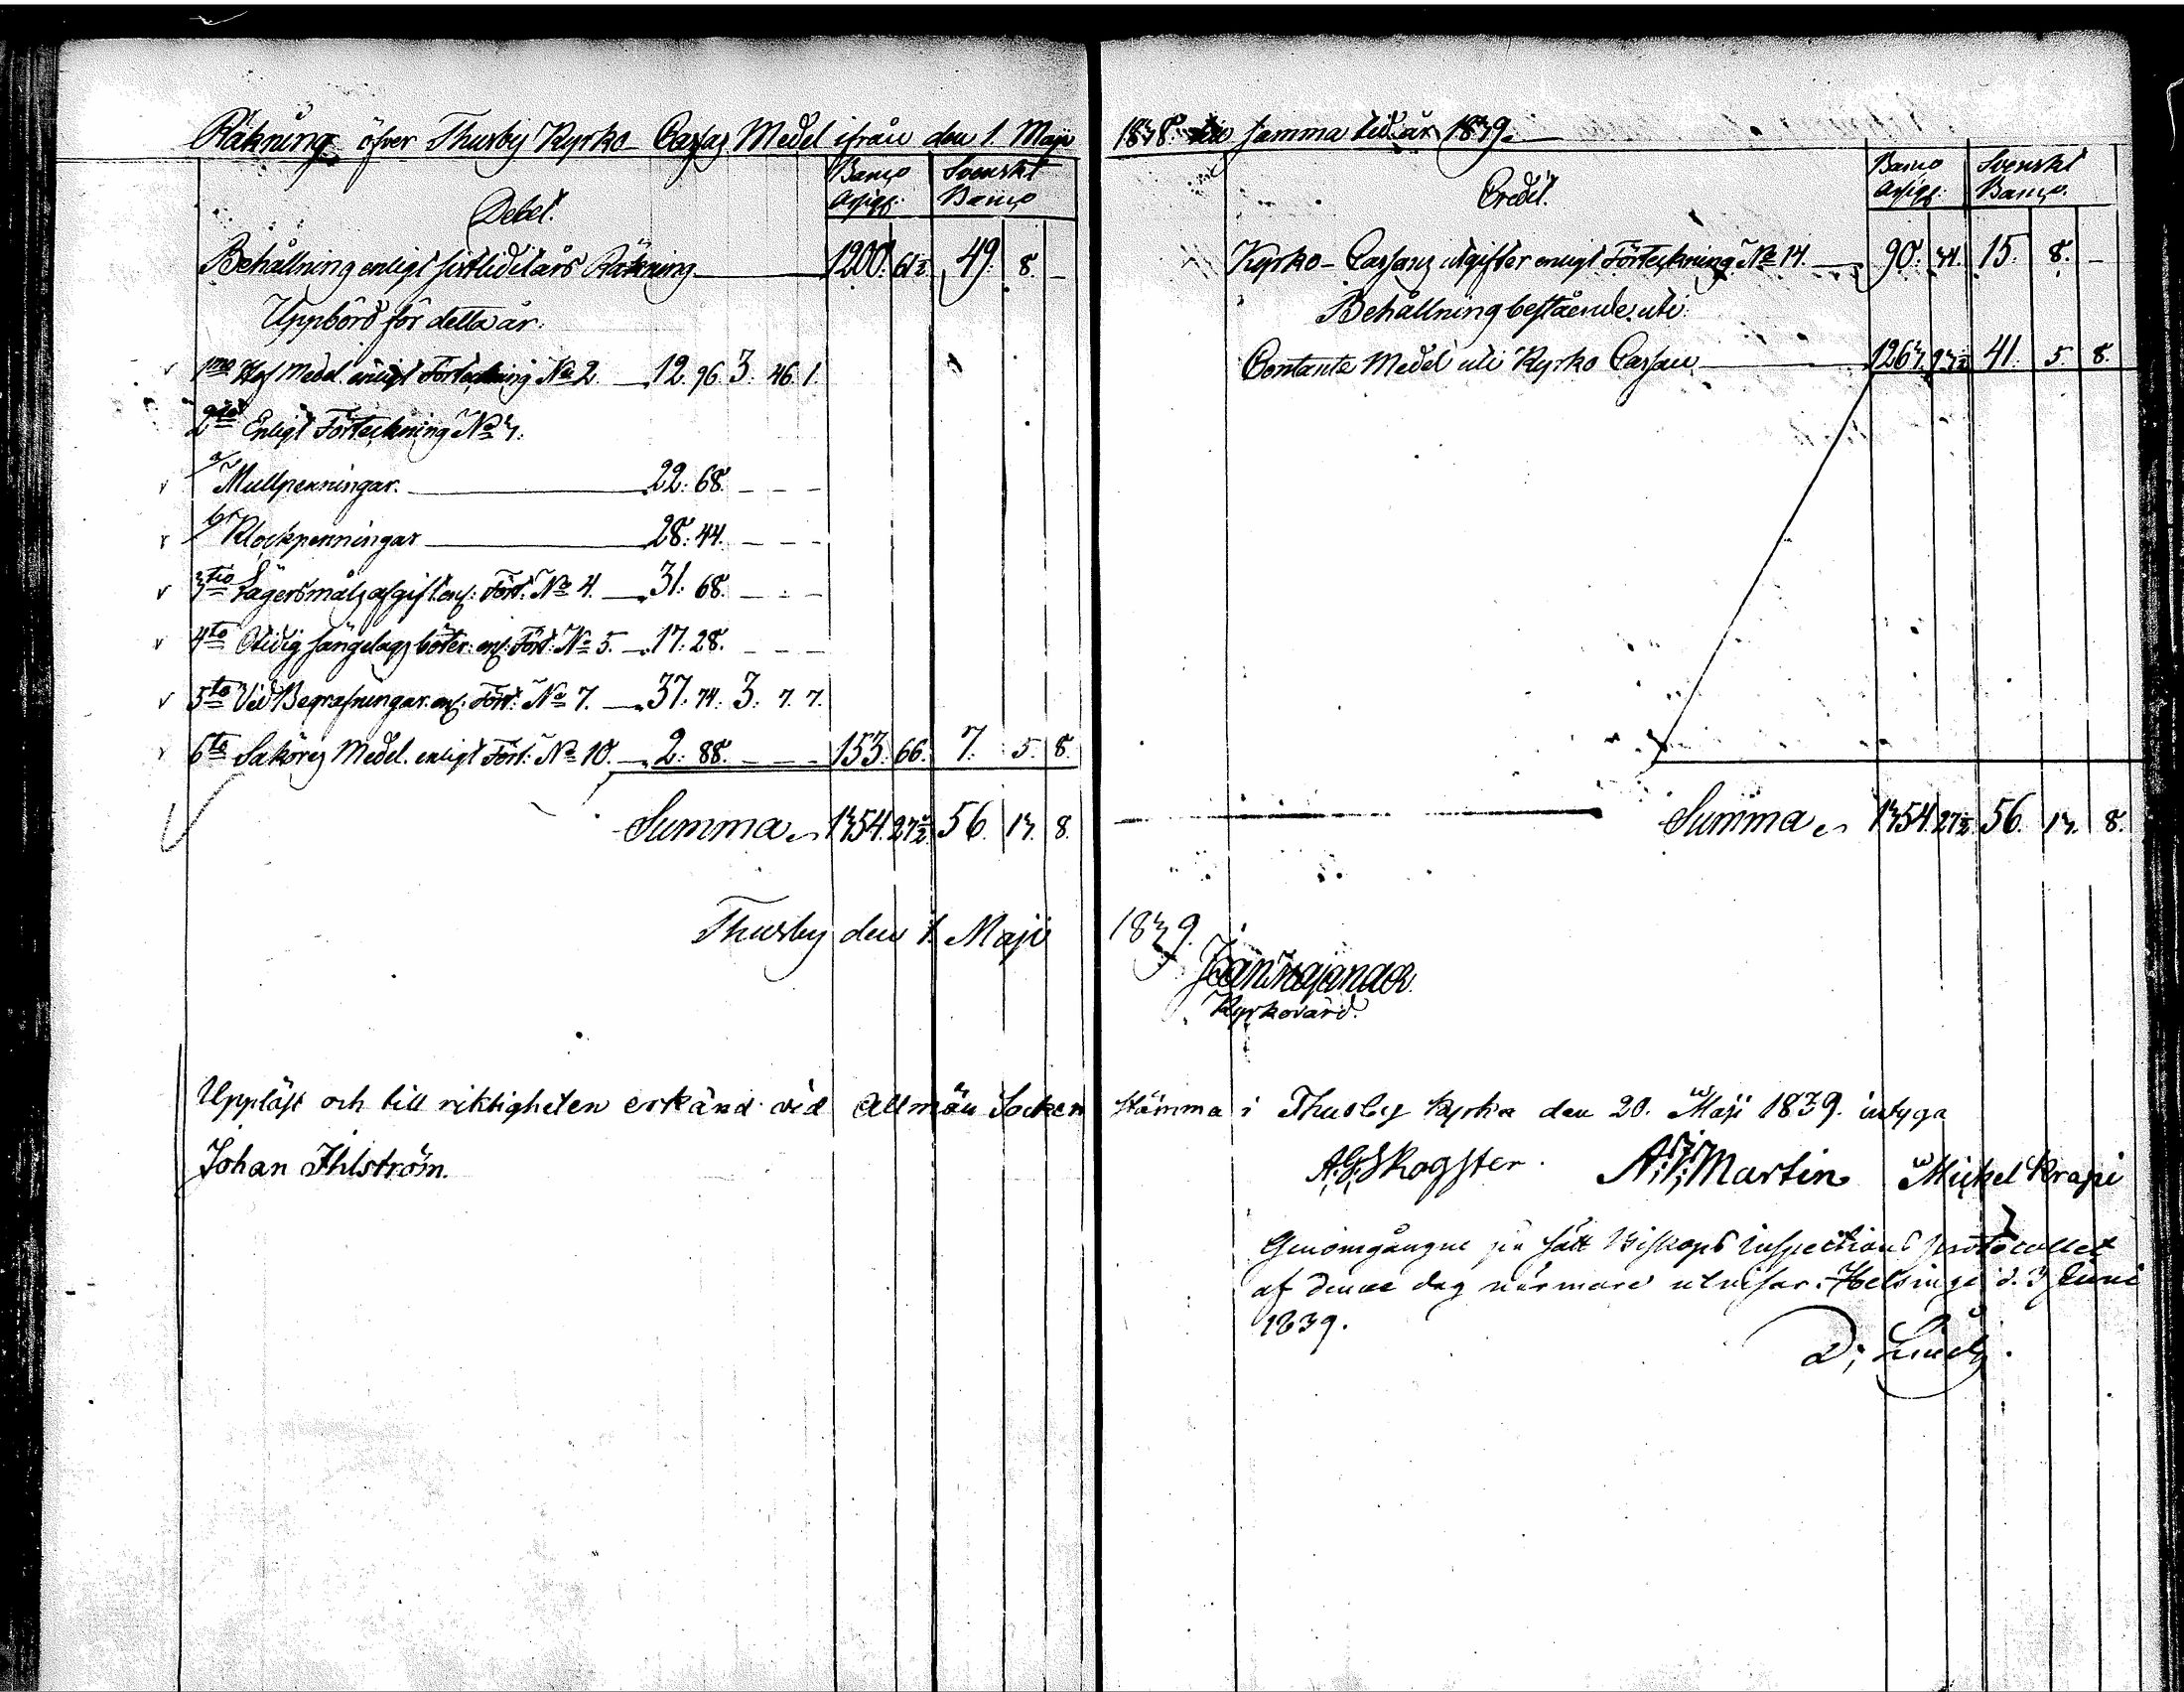 Räkning öfver Thusby Kyrko Cassas Medel ifrån den 1. Maji
Debet.
Banco Assign:
Svenskt Banco
Behållning enligt sistledit års Räkning 1200. 61½ 49. 8. –
Uppbörd för detta år.
1mo Haf Medel enligt Förteckning No 2 12. 96 3. 46. 1.
2do Enligt Förteckning No 3.
a/ Mullpenningar. 22. 68. – – –
b/ Klockpenningar 28. 44. – – –
3tio Lägersmåls afgift enl: Fört: No 4. 31. 68. – – –
4to Otidig sängelags böter. enl: Fört: No 5. 17. 28. – – –
5to Vid Begrafningar. enl: Fört: No 7. 37. 74. 3. 7. 7.
6to Saköres Medel. enligt Fört: No 10. 2. 88. – – – 153. 66. 7. 5. 8.
Summa 1354. 27½ 56. 13. 8.
Thusby den 1. Maji
Uppläst och till riktigheten erkänd vid Allmän Socken
Johan Ihlström.
1838. till samma tid år 1839.
Credit.
Banco Assign:
Svenskt Banco.
Kyrko-Cassans utgifter enligt Förteckning No 14. 90. 34. 15. 8. –
Behållning bestående uti:
Contante Medel uti Kyrko Cassan 1263. 93½ 41. 5. 8.
Summa 1354. 27½ 56. 13. 8.
1839.
Kyrkovärd.
stämma i Thusby Kyrka den 20. Maji 1839. intyga
A: G: Skogster. Martin Mickel Krapi
Genomgången på sätt Biskops Inspections protocollet
af denne dag närmare utvisar. Helsinge d. 3 Juni
1839.